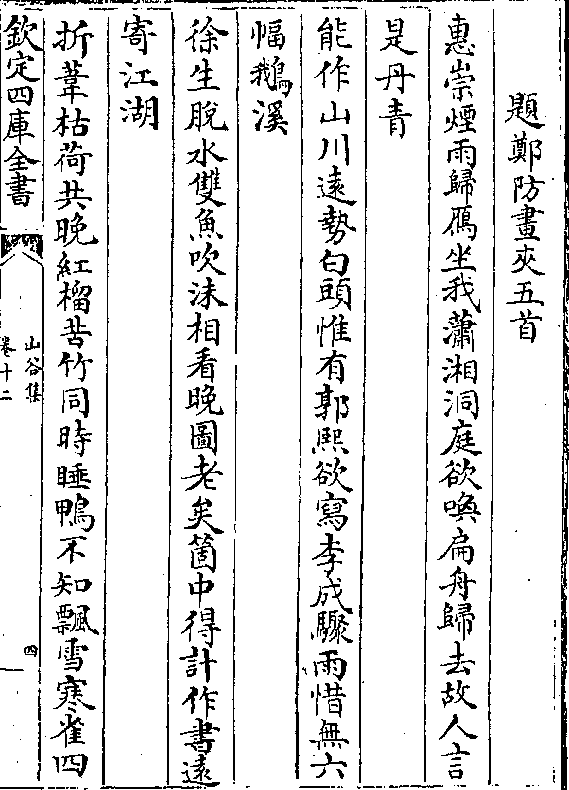 題鄭防畫夾五首
惠崇煙雨歸鴈坐我瀟湘洞庭欲喚扁舟歸去故人言
是丹青
能作山川遠勢白頭惟有郭熙欲寫李成驟雨惜無六
幅鵝溪
徐生脫水雙魚吹沫相看晚圖老矣箇中得計作書遠
寄江湖
折葦枯荷共晚紅榴苦竹同時睡鴨不知飄雪寒雀四
欽定四庫全書
山谷集
卷十二
四